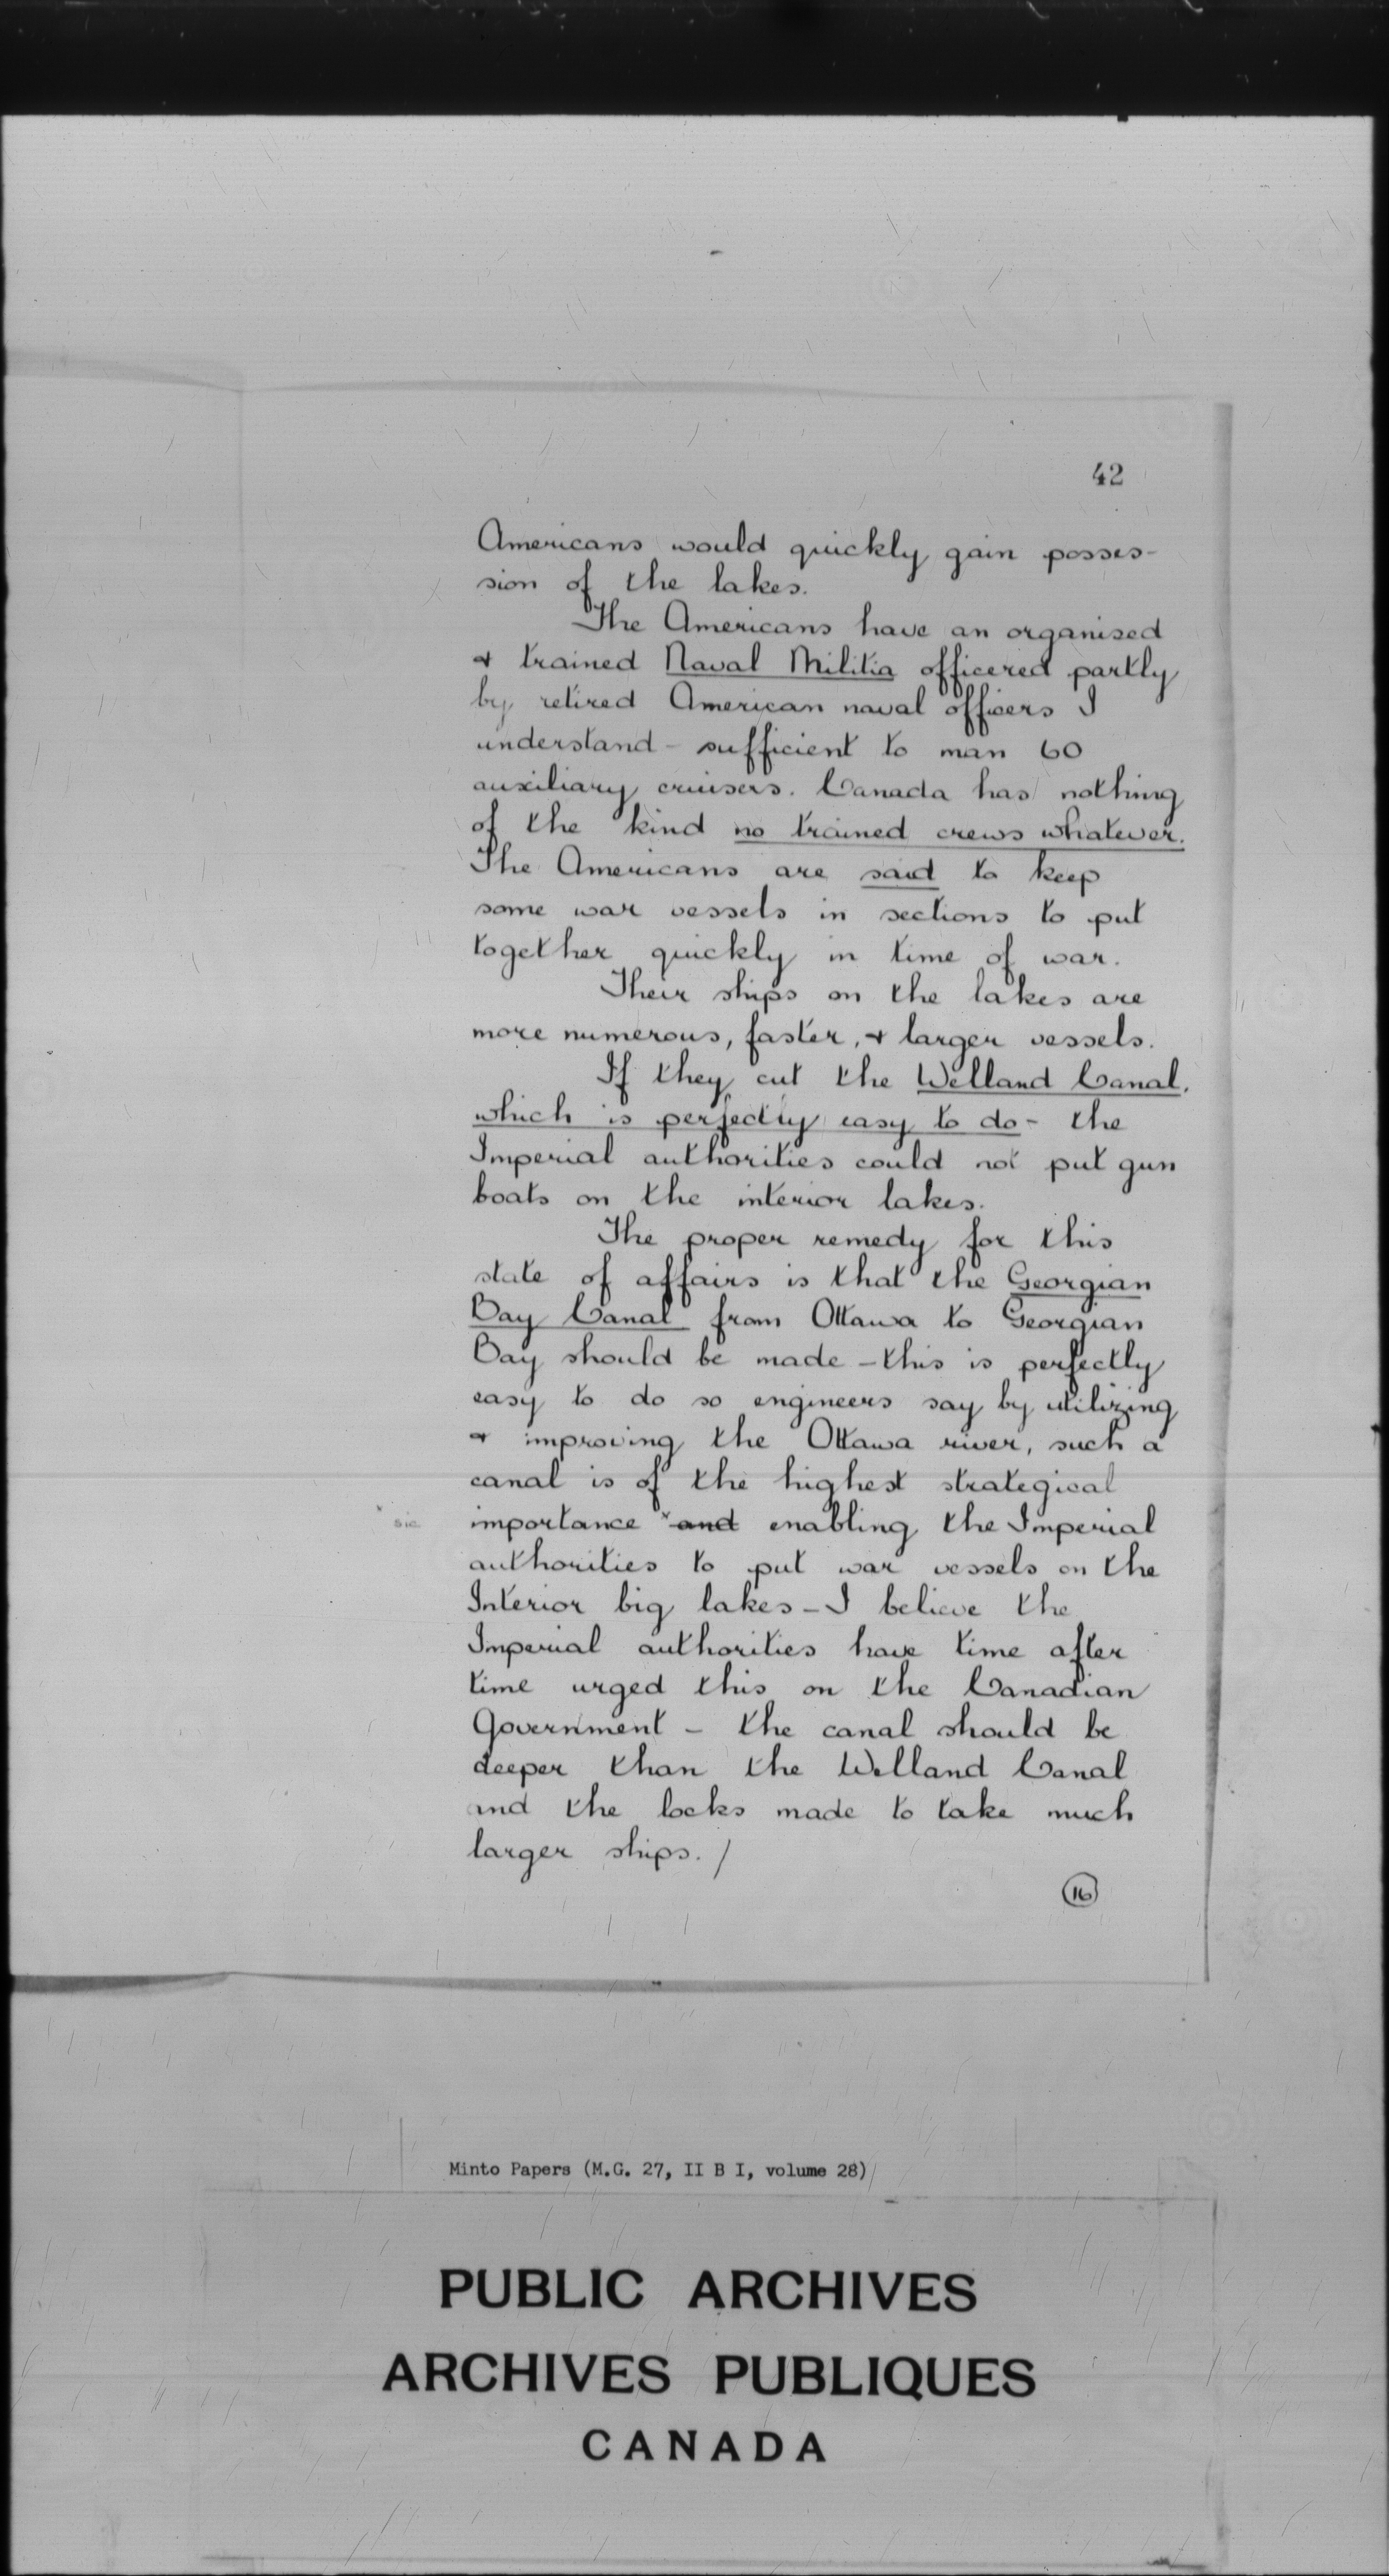 42
Americans would quickly gain posses-
sion of the lakes.
The Americans have an organised
& trained Naval Militia officered partly
by retired American naval officers I
understand - sufficient to man 60
auxiliary cruisers. Canada has nothing
of the kind no trained crews whatever.
The Americans are said to keep
some war vessels in sections to put
together quickly in time of war.
Their ships on the lakes are
more numerous, faster, & larger vessels.
If they cut the Welland Canal,
which is perfectly easy to do - the
Imperial authorities could not put gun
boats on the interior lakes.
The proper remedy for this
state of affairs is that the Georgian
Bay Canal from Ottawa to Georgian
Bay should be made - this is perfectly
easy to do so engineers say by utilizing
& improving the Ottawa river, such a
canal is of the highest strategical
x sic importance x and enabling the Imperial
authorities to put war vessels on the
Interior big lakes - I believe the
Imperial authorities have time after
time urged this on the Canadian
Government - the canal should be
deeper than the Welland Canal
and the locks made to take much
larger ships. /
16
Minto Papers (M.G. 27, II B I, volume 28)
PUBLIC ARCHIVES
ARCHIVES PUBLIQUES
CANADA